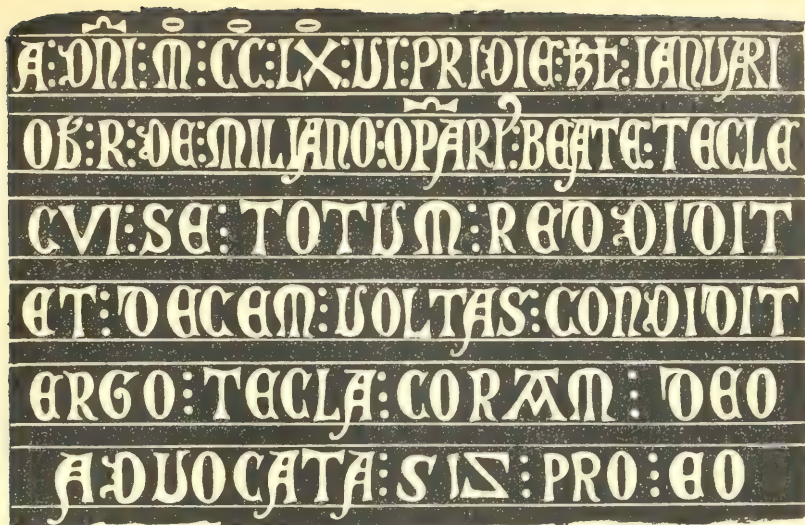 A:DÑI:M̊:CC̊:LX̊:UI:PRIDIE:KL:IANUARI
OB:R:DE:MILIANO:OP̄ARI᾿:BEATE:TECLE
CVI:SE:TOTUM:REDDIDIT
ET:DECEM:UOLTAS:CONDIDIT
ERGO:TECLA:CORAM:DEO
ADUOCATA:SIS:PRO:EO